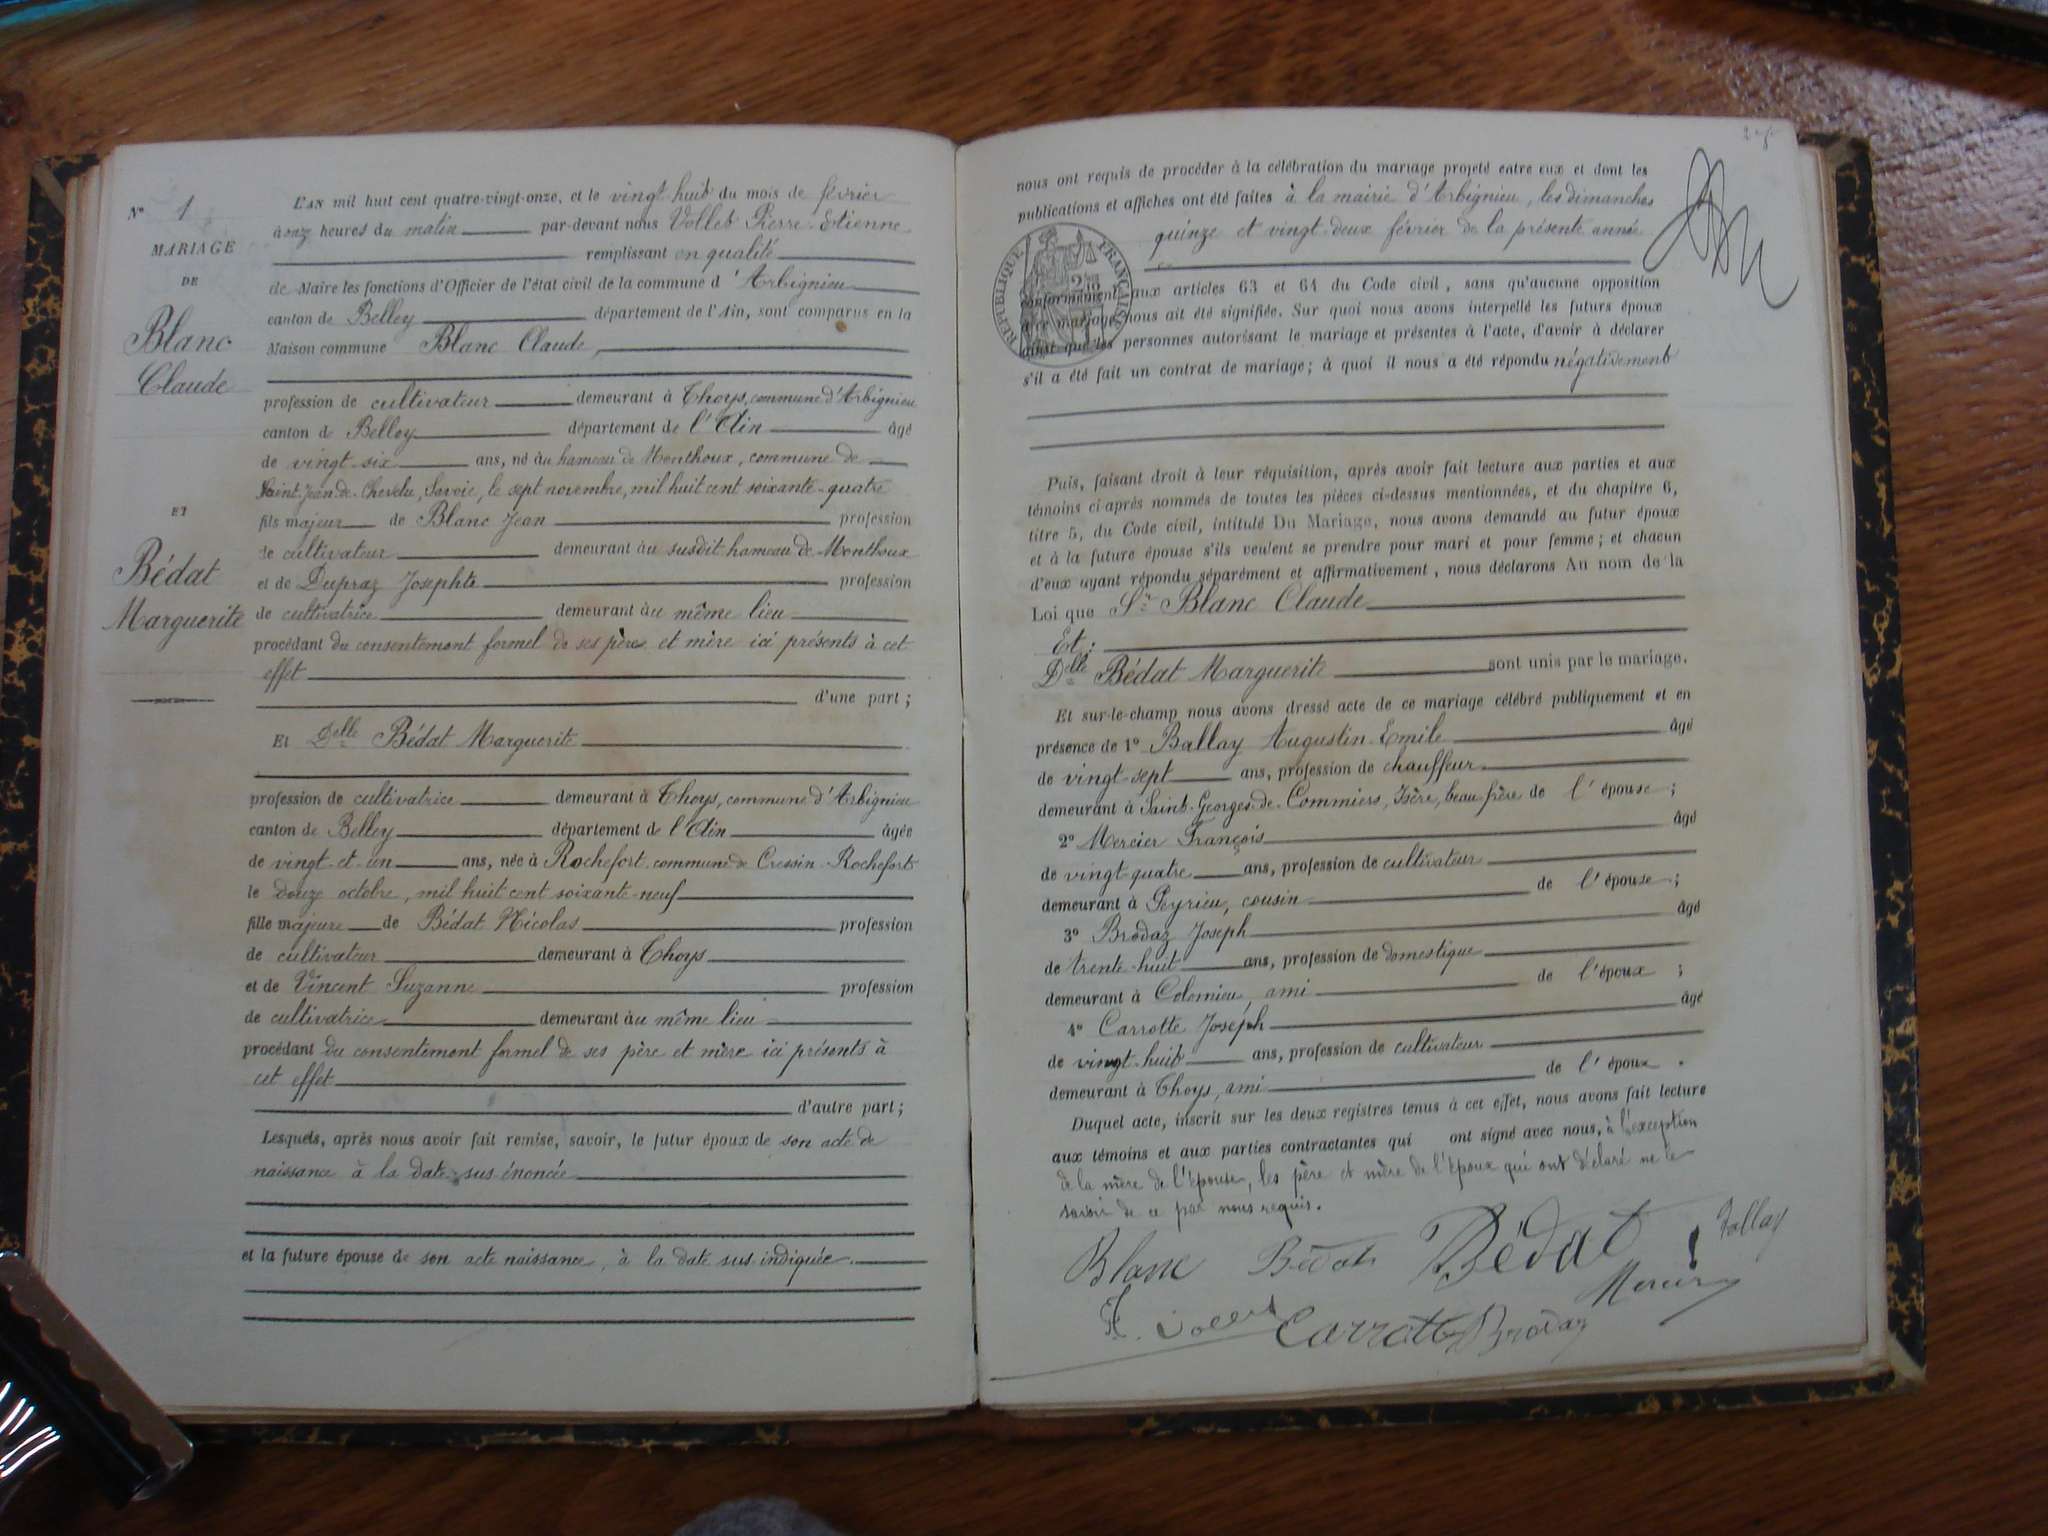 N° 1
MARIAGE
DE
Blanc
Claude
ET
Bédat
Marguerite
L'AN mil huit cent quatre-vingt-onze, et le vingt huit du mois de février
à onz heures du matin par-devant nous Vollet Pierre-Etienne
remplissant en qualité
de Maire les fonctions d'Officier de l'état civil de la commune d'Arbignieu
canton de Belley département de l'Ain, sont comparus en la
Maison commune Blanc Claude,
profession de cultivateur demeurant à Thoys, commune d'Arbignieu
canton de Belley département de l'Ain âgé
de vingt-six ans, né au hameau de Monthoux, commune de
Saint-Jean-de-Chevelu, Savoie, le sept novembre, mil huit cent soixante-quatre
fils majeur de Blanc Jean profession
de cultivateur demeurant au susdit hameau de Monthoux
et de Dupraz Josephte profession
de cultivatrice demeurant au même lieu
procédant du consentement formel de ses père et mère ici présents à cet
effet
d'une part ;
Et Delle Bédat Marguerite
profession de cultivatrice demeurant à Thoys, commune d'Arbignieu
canton de Belley département de l'Ain âgée
de vingt-et-un ans, née à Rochefort commune de Cressin-Rochefort
le douze octobre, mil huit cent soixante-neuf
fille majeure de Bédat Nicolas profession
de cultivateur demeurant à Thoys
et de Vincent Suzanne profession
de cultivatrice demeurant au même lieu
procédant du consentement formel de ses père et mère ici présents à
cet effet
d'autre part ;
Lesquels, après nous avoir fait remise, savoir, le futur époux de son acte de
naissance à la date sus énoncée
et la future épouse de son acte naissance, à la date sus indiquée.
nous ont requis de procéder à la célébration du mariage projeté entre eux et dont les
publications et affiches ont été faites à la mairie d'Arbignieu, les dimanches
quinze et vingt-deux février de la présente année
RÉPUBLIQUE FRANÇAISE
conformément aux articles 63 et 64 du Code civil, sans qu'aucune opposition
à ce mariage nous ait été signifiée. Sur quoi nous avons interpellé les futurs époux
ainsi que les personnes autorisant le mariage et présentes à l'acte, d'avoir à déclarer
s'il a été fait un contrat de mariage ; à quoi il nous a été répondu négativement
Puis, faisant droit à leur réquisition, après avoir fait lecture aux parties et aux
témoins ci-après nommés de toutes les pièces ci-dessus mentionnées, et du chapitre 6,
titre 5, du Code civil, intitulé Du Mariage, nous avons demandé au futur époux
et à la future épouse s'ils veulent se prendre pour mari et pour femme ; et chacun
d'eux ayant répondu séparément et affirmativement, nous déclarons Au nom de la
Loi que Sr Blanc Claude
Et :
Delle Bédat Marguerite sont unis par le mariage.
Et sur-le-champ nous avons dressé acte de ce mariage célébré publiquement et en
présence de 1° Ballay Augustin-Emile âgé
de vingt-sept ans, profession de chauffeur
demeurant à Saint-Georges-de-Commiers, Isère, beau frère de l'épouse ;
2° Mercier François âgé
de vingt quatre ans, profession de cultivateur
demeurant à Peyrieu, cousin de l'épouse ;
3° Brodaz Joseph âgé
de trente-huit ans, profession de domestique
demeurant à Colomieu, ami de l'époux ;
4° Carrotte Joseph âgé
de vingt-huit ans, profession de cultivateur
demeurant à Thoys, ami de l'époux .
Duquel acte, inscrit sur les deux registres tenus à cet effet, nous avons fait lecture
aux témoins et aux parties contractantes qui ont signé avec nous, à l'exception
de la mère de l'épouse, les père et mère de l'époux qui ont déclaré ne le
savoir de ce par nous requis.
Blanc Bédat Bédat Ballay
Mercier
Vollet Carrotte Brodaz